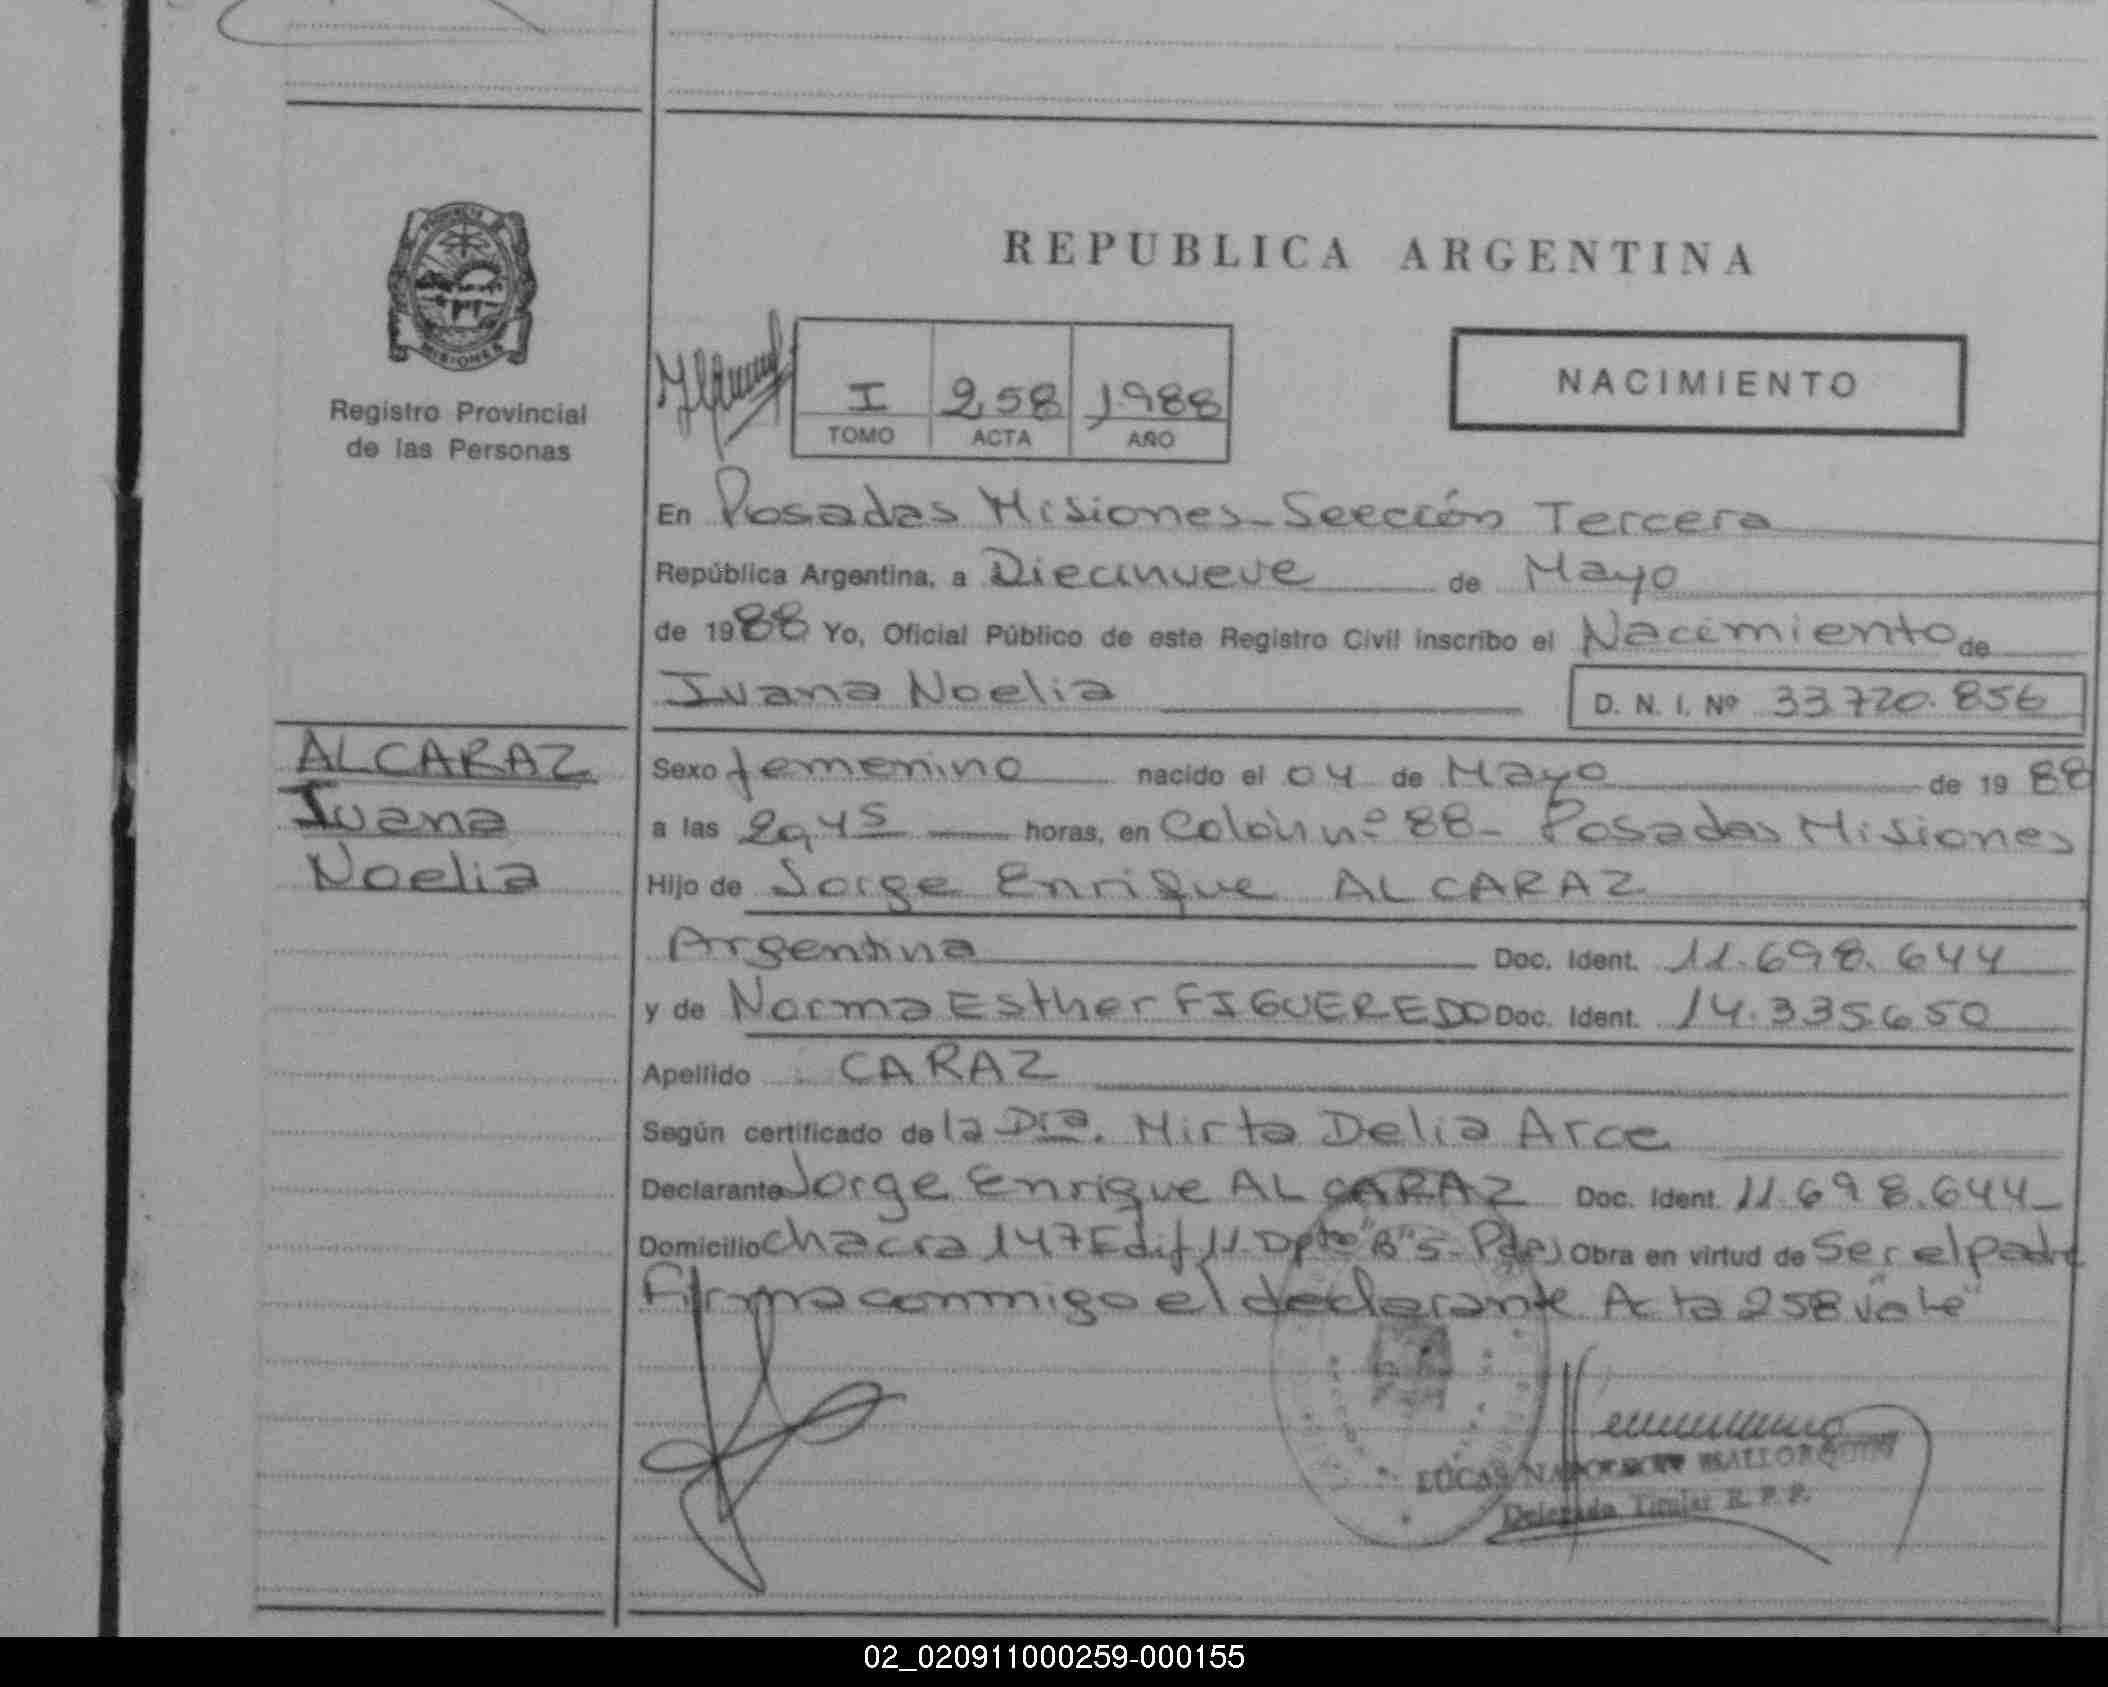 PROVINCIA
MISIONES
Registro Provincial
de las Personas
REPUBLICA ARGENTINA
I 258 1988
TOMO ACTA AÑO
NACIMIENTO
En Posadas Misiones-Sección Tercera
República Argentina, a Diecinueve de Mayo
de 1988 Yo, Oficial Público de este Registro Civil inscribo el Nacimiento de
Ivana Noelia D. N. I. Nº 33.720.856
ALCARAZ
Ivana
Noelia
Sexo femenino nacido el 04 de Mayo de 1988
a las 20,45 horas, en Colón nº 88- Posadas Misiones
Hijo de Jorge Enrique ALCARAZ
Argentina Doc. Ident. 11.698.644
y de Norma Esther FIGUEREDO Doc. Ident. 14.335.650
Apellido CARAZ
Según certificado de la Dra. Mirta Delia Arce
Declarante Jorge Enrique ALCARAZ Doc. Ident. 11.698.644-
Domicilio Chacra 147 Edif 11 Dpto "B" 5- Pdas Obra en virtud de Ser el padre
Firma conmigo el declarante Acta 258 "vale"
LUCAS NAPOLEON MALLORQUIN
Delegado Titular R. P. P.
02_020911000259-000155